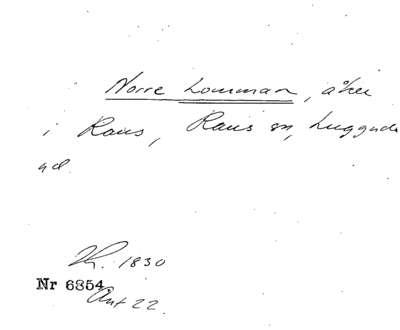 Norre Lomman, åker
i Raus, Raus sn, Luggude
hd.
K. 1830
Nr 6854
Akt 22.